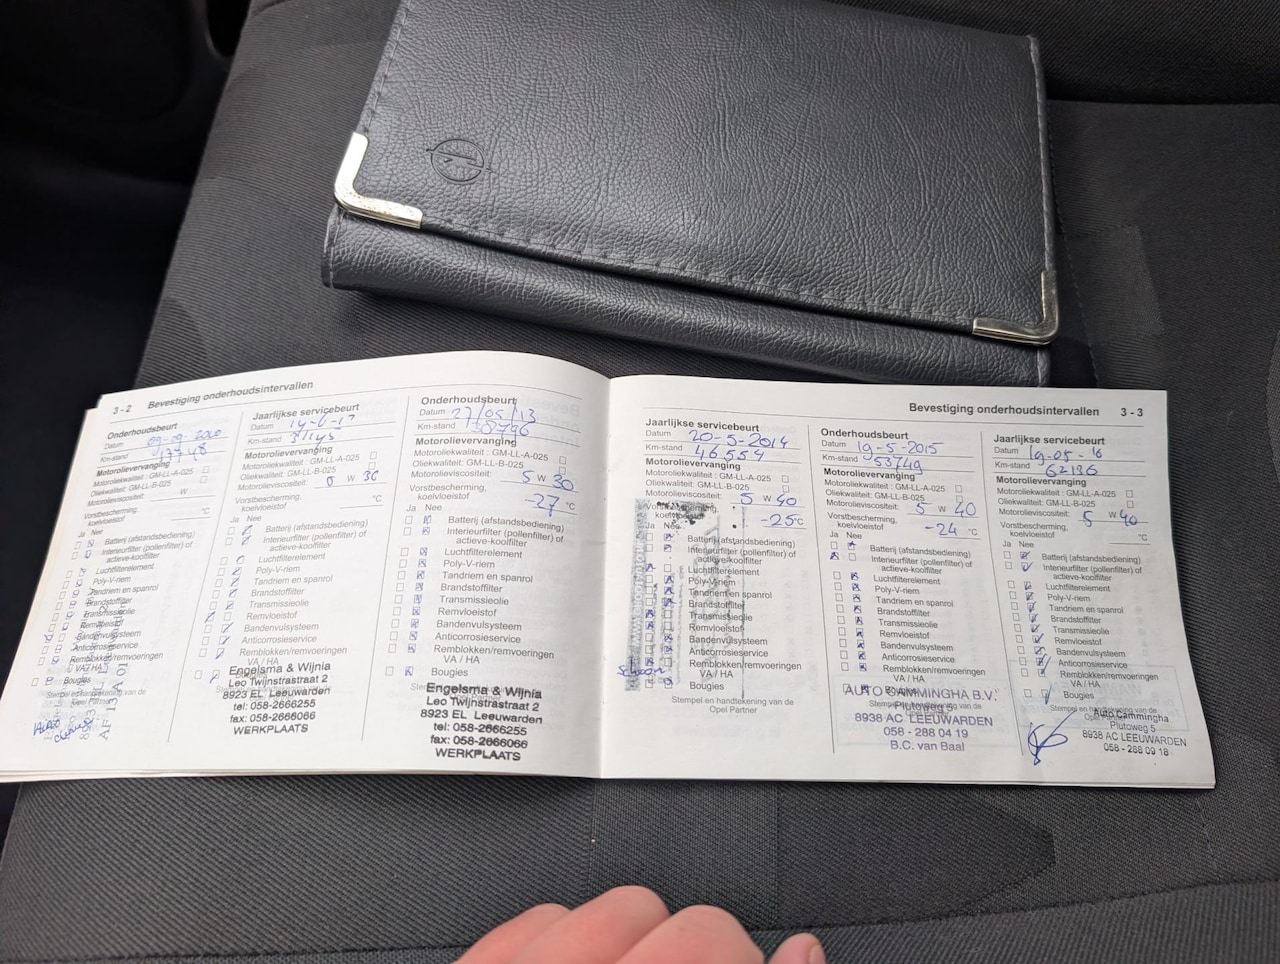 3 - 2 Bevestiging onderhoudsintervallen
Onderhoudsbeurt
Datum
Km-stand
Motorolievervanging
Motoroliekwaliteit: GM-LL-A-025
Oliekwaliteit: GM-LL-B-025
Motorolieviscositeit: W
Vorstbescherming, °C
koelvloeistof
Ja Nee
Batterij (afstandsbediening)
Interieurfilter (pollenfilter) of
actieve-koolfilter
Luchtfilterelement
Poly-V-riem
Tandriem en spanrol
Brandstoffilter
Transmissieolie
Remvloeistof
Bandenvulsysteem
Anticorrosieservice
Remblokken/remvoeringen
VA / HA
Bougies
Stempel en handtekening van de
Opel Partner
Jaarlijkse servicebeurt
Datum
Km-stand
Motorolievervanging
Motoroliekwaliteit : GM-LL-A-025
Oliekwaliteit: GM-LL-B-025
Motorolieviscositeit: W 30
Vorstbescherming, °C
koelvloeistof
Ja Nee
Batterij (afstandsbediening)
Interieurfilter (pollenfilter) of
actieve-koolfilter
Luchtfilterelement
Poly-V-riem
Tandriem en spanrol
Brandstoffilter
Transmissieolie
Remvloeistof
Bandenvulsysteem
Anticorrosieservice
Remblokken/remvoeringen
VA / HA
Engelsma & Wijnia
Leo Twijnstrastraat 2
8923 EL Leeuwarden
tel: 058-2666255
fax: 058-2666066
WERKPLAATS
Onderhoudsbeurt
Datum 27/05/13
Km-stand
Motorolievervanging
Motoroliekwaliteit : GM-LL-A-025
Oliekwaliteit: GM-LL-B-025
Motorolieviscositeit: 5 W 30
Vorstbescherming, -27 °C
koelvloeistof
Ja Nee
Batterij (afstandsbediening)
Interieurfilter (pollenfilter) of
actieve-koolfilter
Luchtfilterelement
Poly-V-riem
Tandriem en spanrol
Brandstoffilter
Transmissieolie
Remvloeistof
Bandenvulsysteem
Anticorrosieservice
Remblokken/remvoeringen
VA / HA
Bougies
Engelsma & Wijnia
Leo Twijnstrastraat 2
8923 EL Leeuwarden
tel: 058-2666255
fax: 058-2666066
WERKPLAATS
Bevestiging onderhoudsintervallen 3 - 3
Jaarlijkse servicebeurt
Datum 20-5-2014
Km-stand 46554
Motorolievervanging
Motoroliekwaliteit : GM-LL-A-025
Oliekwaliteit: GM-LL-B-025
Motorolieviscositeit: 5 W 40
Vorstbescherming,
koelvloeistof -25 °C
Ja Nee
Batterij (afstandsbediening)
Interieurfilter (pollenfilter) of
actieve-koolfilter
Luchtfilterelement
Poly-V-riem
Tandriem en spanrol
Brandstoffilter
Transmissieolie
Remvloeistof
Bandenvulsysteem
Anticorrosieservice
Remblokken/remvoeringen
VA / HA
schoon
Bougies
Stempel en handtekening van de
Opel Partner
Onderhoudsbeurt
Datum 19-5-2015
Km-stand 53749
Motorolievervanging
Motoroliekwaliteit : GM-LL-A-025
Oliekwaliteit: GM-LL-B-025
Motorolieviscositeit: 5 W 40
Vorstbescherming,
koelvloeistof -24 °C
Ja Nee
Batterij (afstandsbediening)
Interieurfilter (pollenfilter) of
actieve-koolfilter
Luchtfilterelement
Poly-V-riem
Tandriem en spanrol
Brandstoffilter
Transmissieolie
Remvloeistof
Bandenvulsysteem
Anticorrosieservice
Remblokken/remvoeringen
VA / HA
AUTO CAMMINGHA B.V.
Plutoweg 5
8938 AC LEEUWARDEN
058 - 288 04 19
B.C. van Baal
Jaarlijkse servicebeurt
Datum 19-05-16
Km-stand 62136
Motorolievervanging
Motoroliekwaliteit : GM-LL-A-025
Oliekwaliteit: GM-LL-B-025
Motorolieviscositeit: 5 W 40
Vorstbescherming,
koelvloeistof °C
Ja Nee
Batterij (afstandsbediening)
Interieurfilter (pollenfilter) of
actieve-koolfilter
Luchtfilterelement
Poly-V-riem
Tandriem en spanrol
Brandstoffilter
Transmissieolie
Remvloeistof
Bandenvulsysteem
Anticorrosieservice
Remblokken/remvoeringen
VA / HA
Bougies
Stempel en handtekening van de
Auto Cammingha
Plutoweg 5
8938 AC LEEUWARDEN
058 - 288 09 18